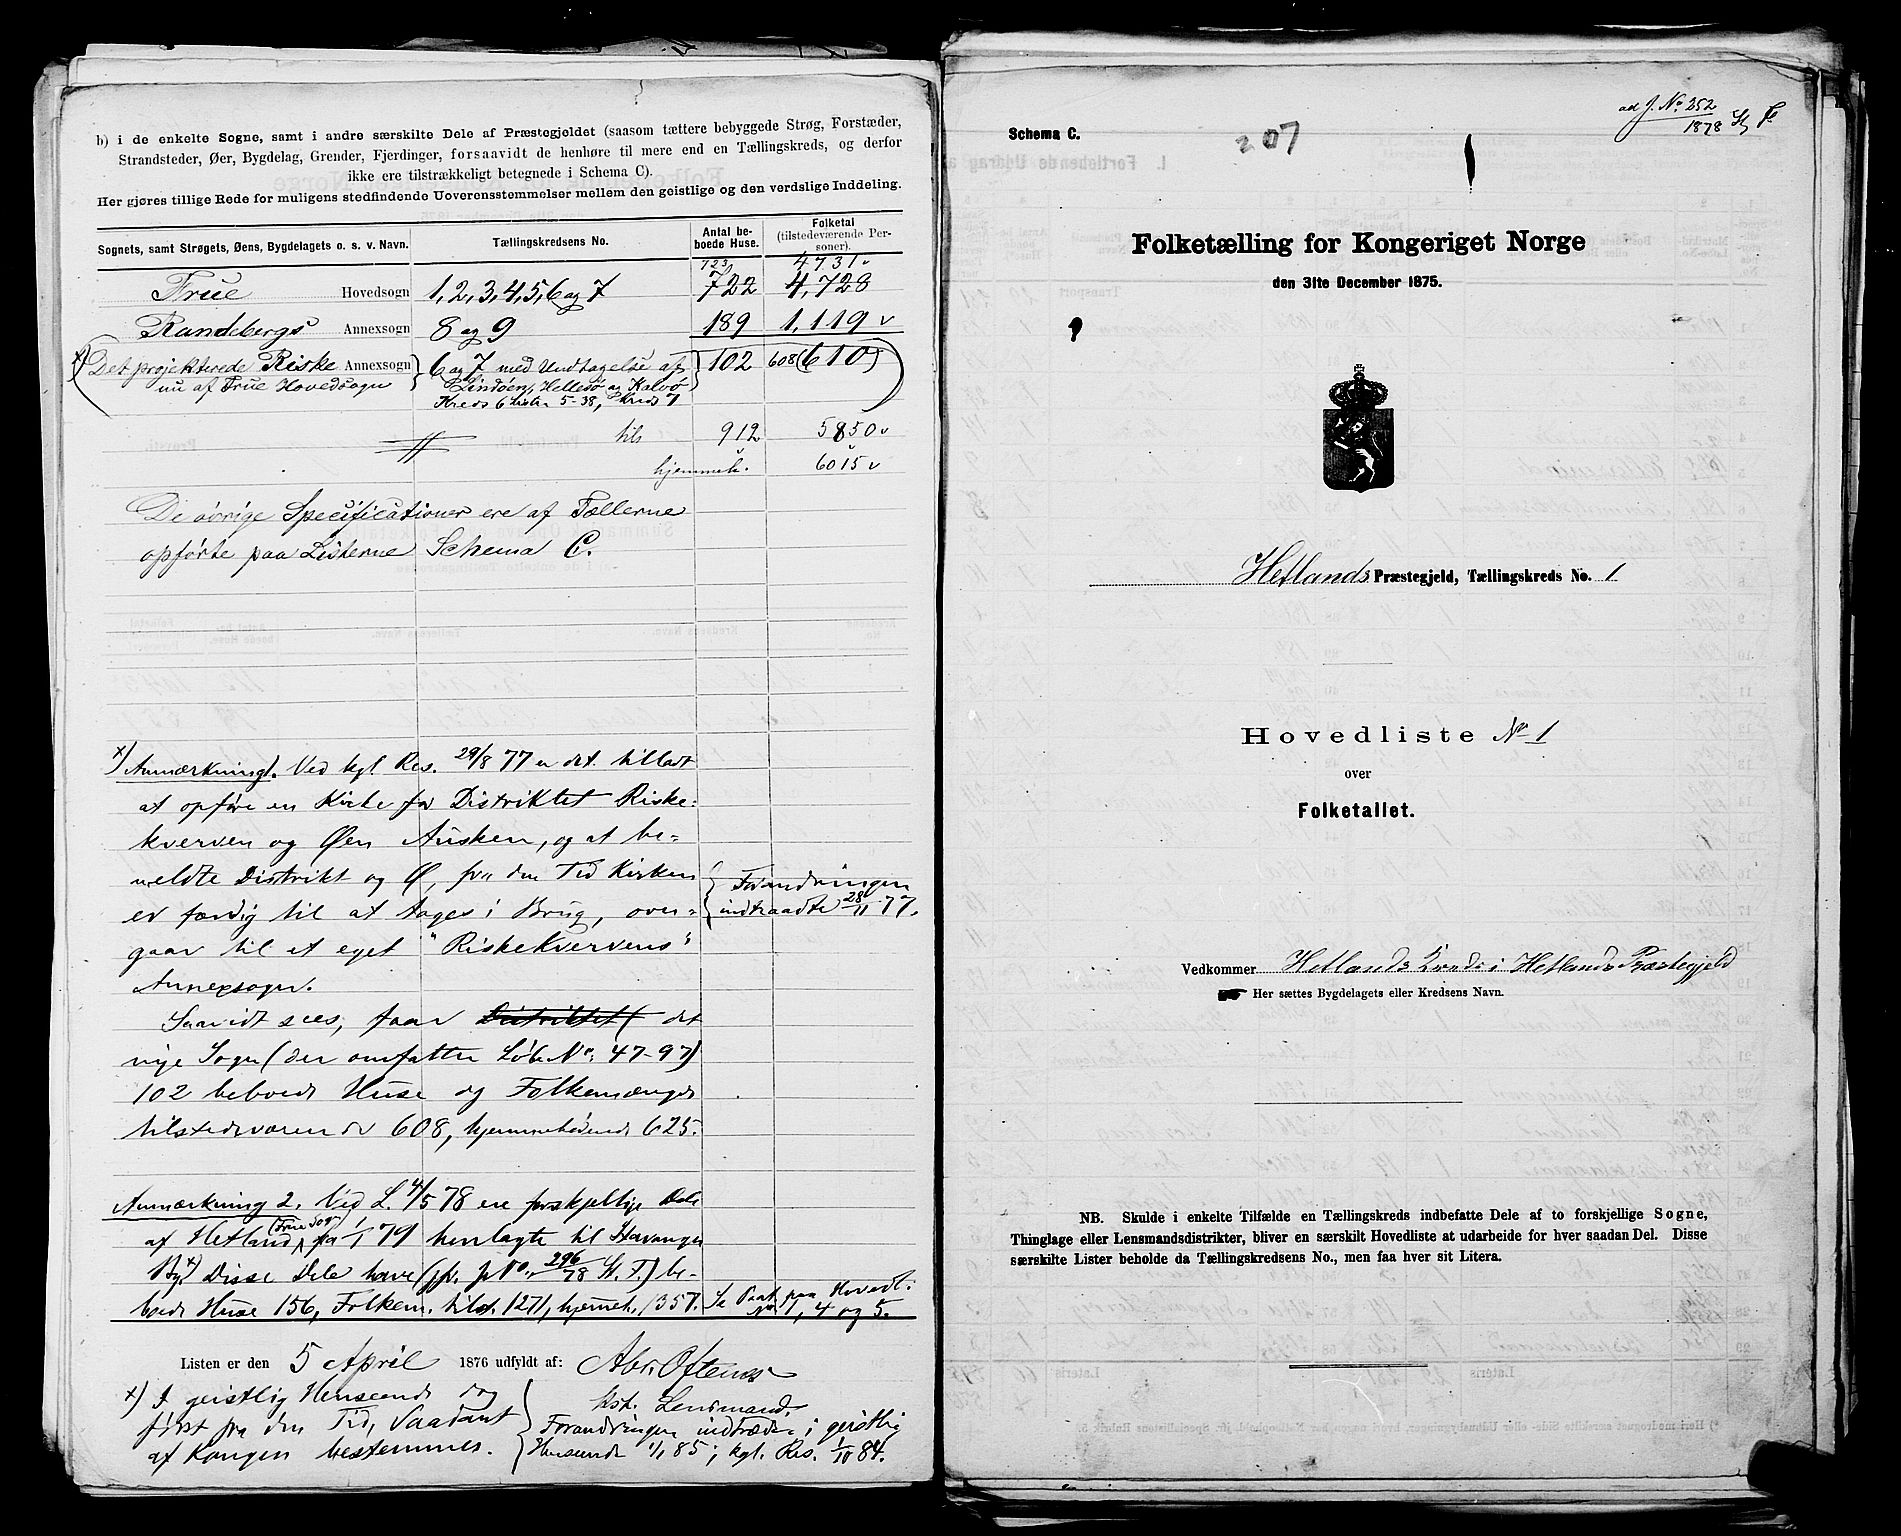 b) i de enkelte Sogne, samt i andre særskilte Dele af Præstegjeldet (saasom tættere bebyggede Strøg, Forstæder,
Strandsteder, Øer, Bygdelag, Grender, Fjerdinger, forsaavidt de henhøre til mere end en Tællingskreds, og derfor
ikke ere tilstrækkeligt betegnede i Schema C).
Her gjøres tillige Rede for muligens stedfindende Uoverensstemmelser mellem den geistlige og den verdslige Inddeling.
Sognets, samt Strøgets, Øens, Bygdelagets o. s. v. Navn. Tællingskredsens No. Antal beboede Huse. Folketal (tilstedeværende Personer).
723 4731
Frue Hovedsogn 1, 2, 3, 4, 5, 6 og 7 722 4,728
Randebergs Annexsogn 8 og 9 189 1,119 v
x) (Det projekterede Riske Annexsogn 6 og 7 med Undtagelse af 102 608 (610)
nu af Frue Hovedsogn Lindøen, Hellesø og Kalvø
Kreds 6 Lister 5-38, Kreds 7
tils 912 5850 v
hjemmeh. 6015 v
De øvrige Specificationer ere af Tællerne
opførte paa Listerne Schema C.
x) Anmærkning 1. Ved kgl Res. 29/8 77 er det tilladt
at opføre en Kirke for Distriktet Riske-
kverven og Øen Åusken, og at be-
meldte Distrikt og Ø, fra den Tid Kirken
er færdig til at tages i Brug, over-
gaar til et eget "Riskekvervens"
Annexsogn.
{Forandringen
indtraadte 28/11 77.
Saavidt sees, faar Distriktet det
nye Sogn (der omfatter Løb No: 47-97)
102 beboede Huse og Folkemængde
tilstedeværende 608, hjemmehørende 625.
Anmærkning 2. Ved L. 4/5 78 ere forskjellige Dele
af Hetland (Frue Sogn) fra 1/1 79 henlagte til Stavanger
By x) Disse Dele have (jfr. J No. 296/78 St. T.) be-
boede Huse 156, Folkem. tilst. 1271, hjemmeh. 1357. Se Paat. paa Hovedl.
No. 1, 4 og 5.
Listen er den 5 April 1876 udfyldt af: Abr. Oftenæs
kst. Lensmand.
x) I geistlig Henseende dog
først fra den Tid, Saadant
af Kongen bestemmes.
Forandringen indtræder i geistlig
Henseende 1/1 85; kgl. Res. 1/10 84.
Schema C.
207
1
ad J. No 252/1878
Folketælling for Kongeriget Norge
den 31te December 1875.
Hetlands Præstegjeld, Tællingskreds No. 1
Hovedliste No 1
over
Folketallet.
Vedkommer Hetlands Kreds i Hetlands Præstegjeld
Her sættes Bygdelagets eller Kredsens Navn.
NB. Skulde i enkelte Tilfælde en Tællingskreds indbefatte Dele af to forskjellige Sogne,
Thinglage eller Lensmandsdistrikter, bliver en særskilt Hovedliste at udarbeide for hver saadan Del. Disse
særskilte Lister beholde da Tællingskredsens No., men faa hver sit Litera.